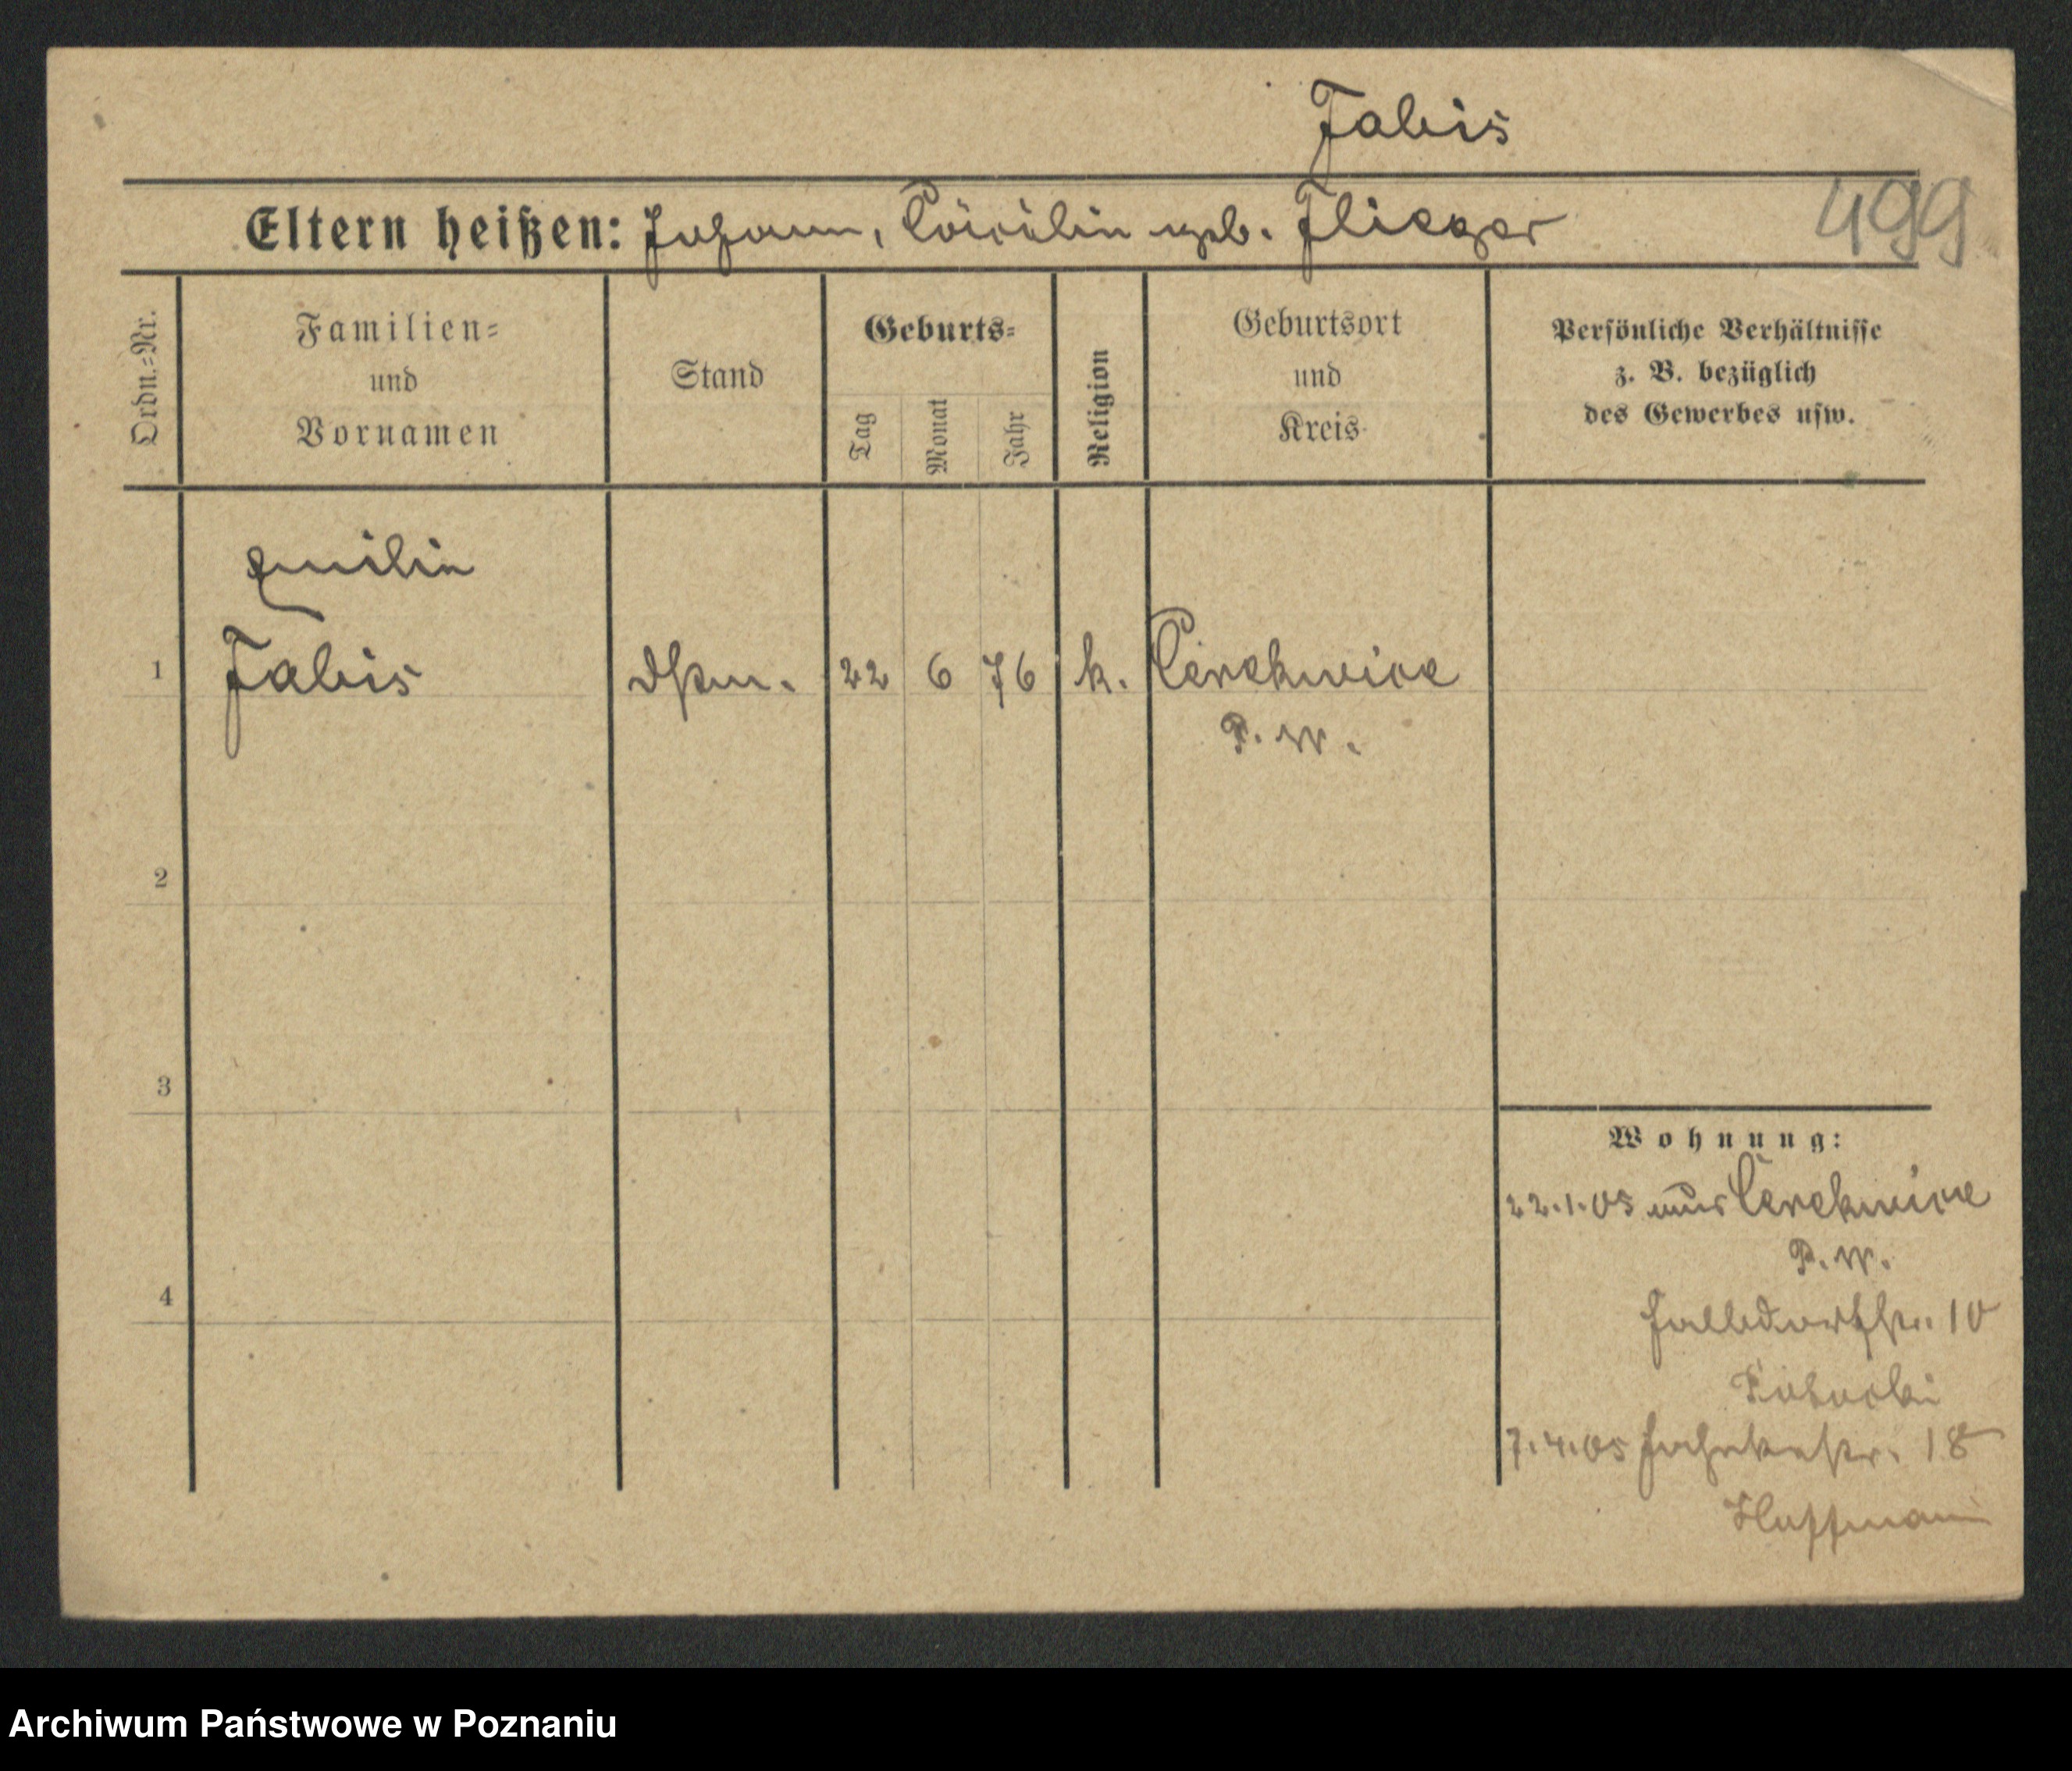 Fabis
499
Eltern heißen: Johann, Cäcilie geb. Flieger
Ordn.=Nr.
Familien=
und
Vornamen
Stand
Geburts=
Tag
Monat
Jahr
Religion
Geburtsort
und
Kreis
Persönliche Verhältnisse
z. B. bezüglich
des Gewerbes usw.
Emilie
1 Fabis 22 6 76 k. Cerekwice
P. W.
2
3
4
Wohnung:
22.1.05 aus Cerekwice
P. W.
Halbdorfstr. 10
7.4.05 18
Hoffmann
Archiwum Państwowe w Poznaniu